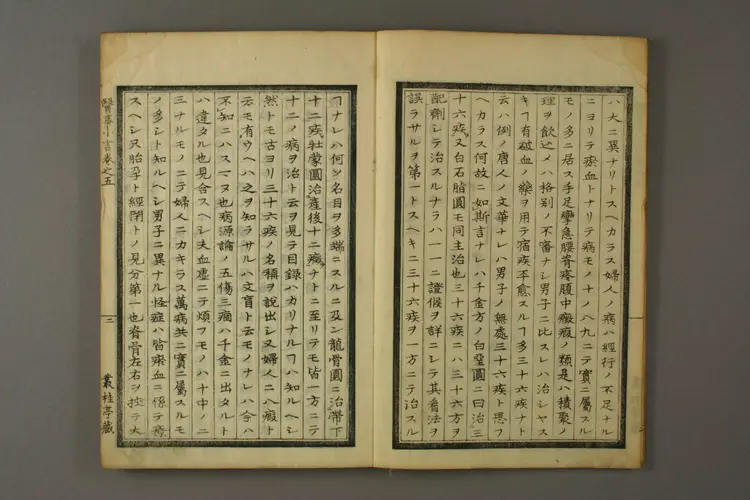 ハ大ニ異ナリトスヘカラス婦人ノ病ハ經行ノ不足ナル
ニヨリテ瘀血トナリテ病モノ十ノ八九ニテ實ニ屬スル
モノ多ニ居ス手足攣急腰脊疼腹中癥瘕ノ類是ハ積聚ノ
理ヲ飲之メハ格別ノ不審ナシ男子ニ比スレハ治シヤス
キヿ有破血ノ藥ヲ用テ宿疾不愈スルヿ多三十六疾ナト
云ハ例ノ唐人ノ文華ナレハ男子ノ無處三十六疾ト思フ
ヘカラス何故ニ如斯言ナレハ千金方ノ白堊圓ニ曰治三
十六疾又白石脂圓モ同主治也三十六疾ニハ三十六方ヲ
配劑シテ治スルナラハ一一ニ證候ヲ詳ニシテ其看法ヲ
誤ラサルヲ第一トスヘキニ三十六疾ヲ一方ニテ治スル
ヿナレハ何ソ名目ヲ多端ニスルニ及ン龍骨圓ニ治帶下
十二疾牡蒙圓治產後十二癥ナトニ至リテモ皆一方ニテ
十二ノ病ヲ治ト云ヲ見テ目錄ハカリナルヿハ知ルヘシ
然トモ古ヨリ三十六疾ノ名稱ヲ說出シ又婦人ニ八瘕ト
云モ有ウヘハ之ヲ知ラサルハ文盲ト云モノナレハ今ハ
不知ニハスマヌ也病源論ノ五傷三痼ハ千金ニ出タルト
ハ違タル也見合スヘシ夫血虛ニテ煩フモノハ十中ノ二
三ナルモノニテ婦人ニカキラス萬病共ニ實ニ屬スルモ
ノ多シト知ルヘシ男子ニ異ナル怪症ハ皆瘀血ニ係テ療
スヘシ只胎孕ト經閉トノ見分第一也脊骨左右ヲ按テ大
醫事小言卷之五
三
叢桂亭藏